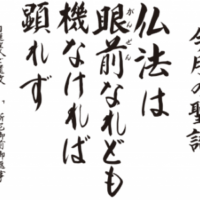 今月の聖語
仏法は
眼前なれども
がんぜん
機なければ
顕れず